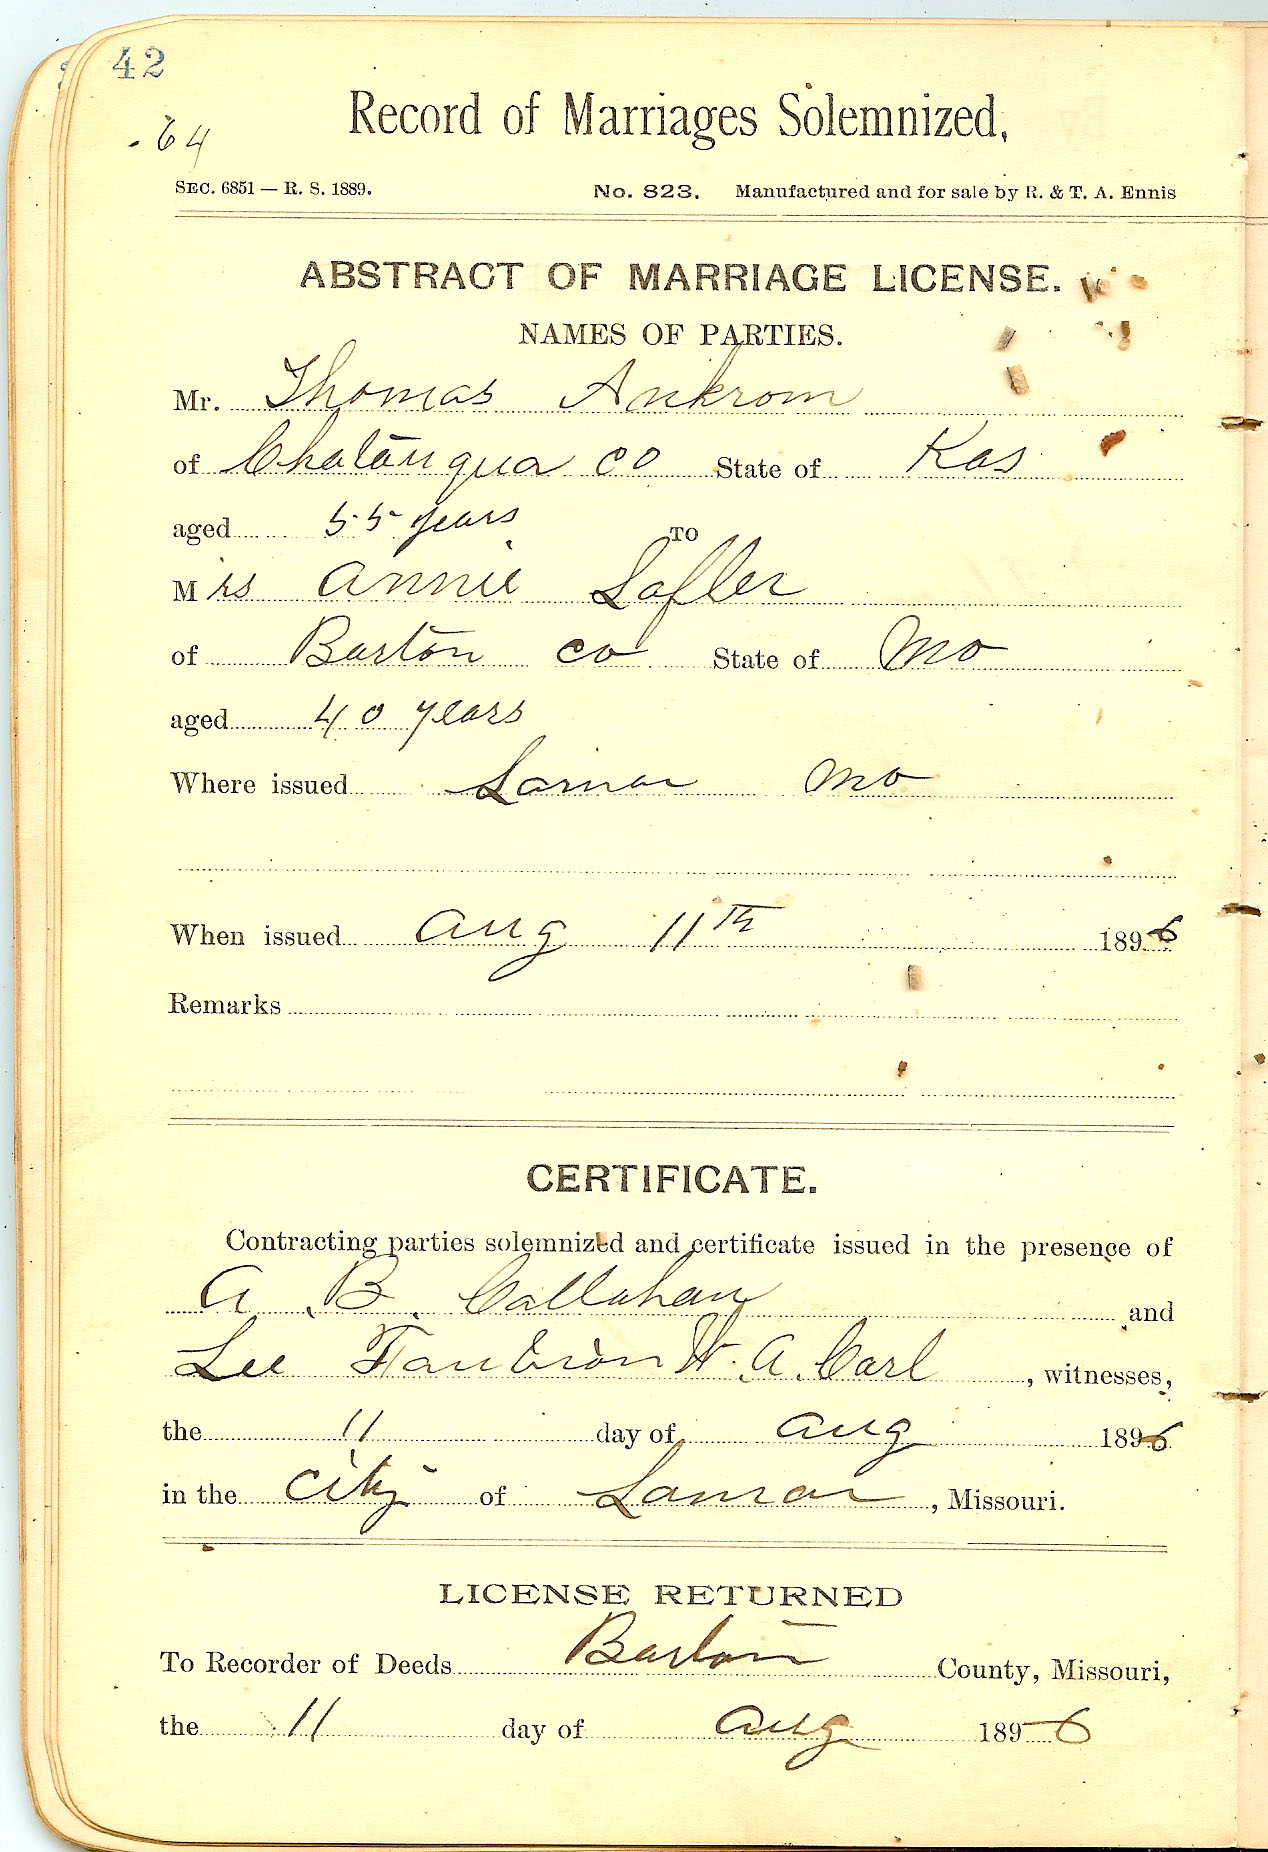 42
64
Record of Marriages Solemnized,
SEC. 6851 — R. S. 1889. No. 823. Manufactured and for sale by R. & T. A. Ennis
ABSTRACT OF MARRIAGE LICENSE.
NAMES OF PARTIES.
Mr. Thomas Ankrom
of Chatauqua co State of Kas
aged 55 years
TO
Mrs Annie Lofler
of Barton co State of Mo
aged 40 years
Where issued Lamar Mo
When issued Aug 11th 1896
Remarks
CERTIFICATE.
Contracting parties solemnized and certificate issued in the presence of
A. B. Callahan and
Lee W. A. Carl, witnesses,
the 11 day of Aug 1896
in the City of Lamar, Missouri.
LICENSE RETURNED
To Recorder of Deeds Barton County, Missouri,
the 11 day of Aug 1896